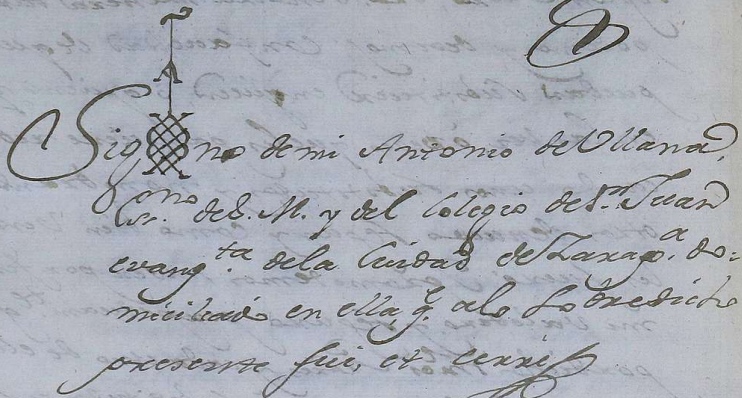 Signo de mi Antonio de Ullana,
Ess.no de S. M. y del Colegio de S.n Juan
evang.ta de la Ciudad de Zarag.a do-
miciliado en ella, q.e a lo sobredicho
presente fui, et cerré